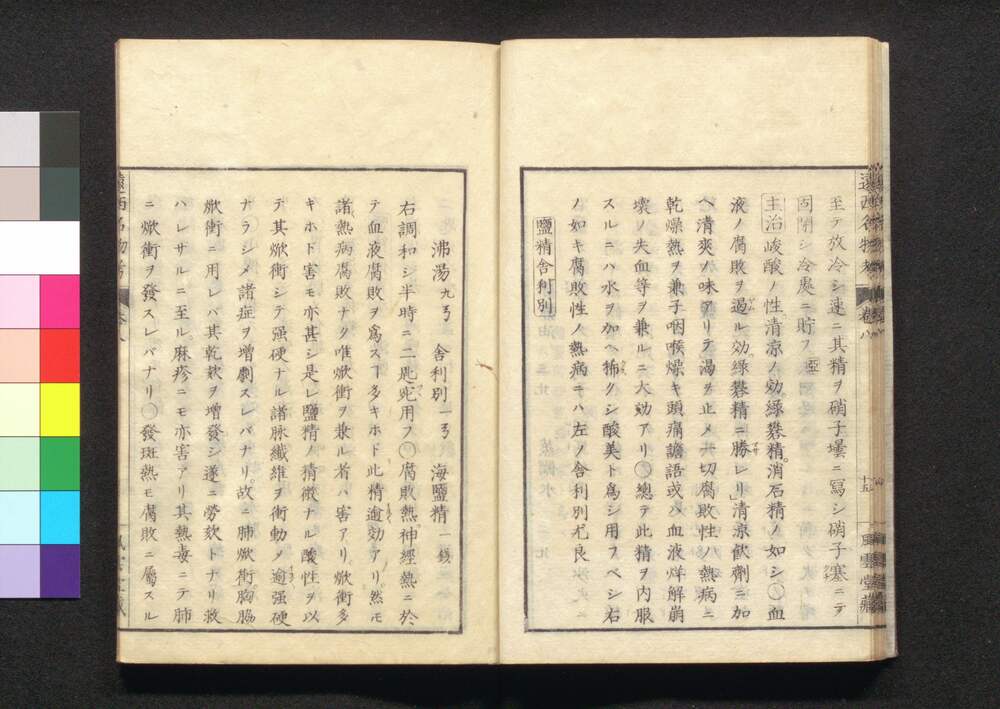 至テ放冷シ速ニ其精ヲ硝子壜ニ寫シ硝子塞ニテ
固閉シ冷處ニ貯フ
主治 峻酸ノ性清涼ノ効緑礬精消石精ノ如シ〇血
液ノ腐敗ヲ過ル効緑礬精ニ勝レリ」清涼飲劑ニ加
ヘ清爽ノ味アリテ渴ヲ止メ一切腐敗性ノ熱病ニ
乾燥熱ヲ兼子咽喉燥キ頭痛譫語或ハ血液烊解崩
壊ノ失血等ヲ兼ルニ大効アリ〇總テ此精ヲ内服
スルニハ水ヲ加ヘ稀クシ酸美ト爲シ用フベシ右
ノ如キ腐敗性ノ熱病ニハ左ノ舍利別尤良
鹽精舍利別
沸湯 九 舍利別 一 海鹽精 一錢
右調和シ半時ニ二匙宛用フ〇腐敗熱神經熱ニ於
テ血液腐敗ヲ爲スヿ多キホド此精逾効アリ然モ
諸熱病腐敗ナク唯焮衝ヲ兼ル者ハ害アリ焮衝多
キホド害モ亦甚シ是レ鹽精ノ精微ナル酸性ヲ以
テ其焮衝シテ强硬ナル諸脉纖維ヲ衝動メ逾强硬
ナラシメ諸症ヲ增劇スレバナリ故ニ肺焮衝胸脇
焮衝ニ用レバ其乾欬ヲ增發シ遂ニ勞欬トナリ救
ハレサルニ至ル麻疹ニモ亦害アリ其熱毒ニテ肺
ニ焮衝ヲ發スレバナリ〇發斑熱モ腐敗ニ屬スル